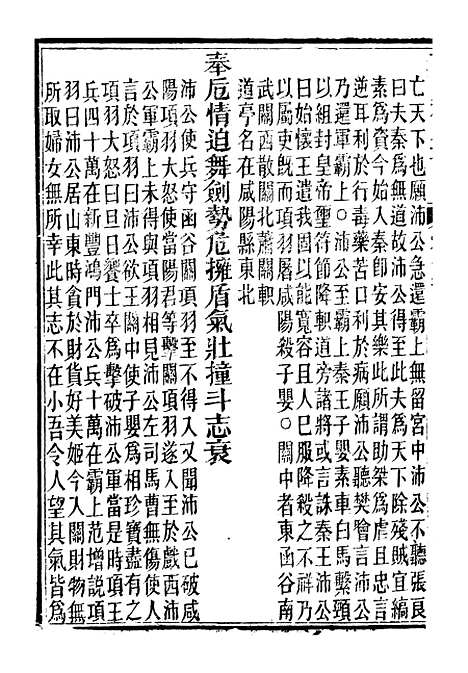 亡天下也願沛公急還霸上無留宮中沛公不聽張良
曰夫秦爲無道故沛公得至此夫爲天下除殘賊宜縞
素爲資今始入秦卽安其樂此所謂助桀爲虐且忠言
逆耳利於行毒藥苦口利於病願沛公聽樊噲言沛公
乃還軍霸上○沛公至霸上秦王子嬰素車白馬繫頸
以組封皇帝璽符節降軹道旁諸將或言誅秦王沛公
曰始懷王遣我固以能寬容且人已服降殺之不祥乃
以屬吏旣而項羽屠咸陽殺子嬰○關中者東函谷南
武關西散關北蕭關軹
道亭名在咸陽縣東北
奉卮情迫舞劍勢危擁盾氣壯撞斗志衰
沛公使兵守函谷關項羽至不得入又聞沛公已破咸
陽項羽大怒使當陽君等擊關項羽遂入至於戲西沛
公軍霸上未得與項羽相見沛公左司馬曹無傷使人
言於項羽曰沛公欲王關中使子嬰爲相珍寶盡有之
項羽大怒曰旦日饗士卒爲擊破沛公軍當是時項王
兵四十萬在新豐鴻門沛公兵十萬在霸上范增說項
羽曰沛公居山東時貪於財貨好美姬今入關財物無
所取婦女無所幸此其志不在小吾令人望其氣皆爲